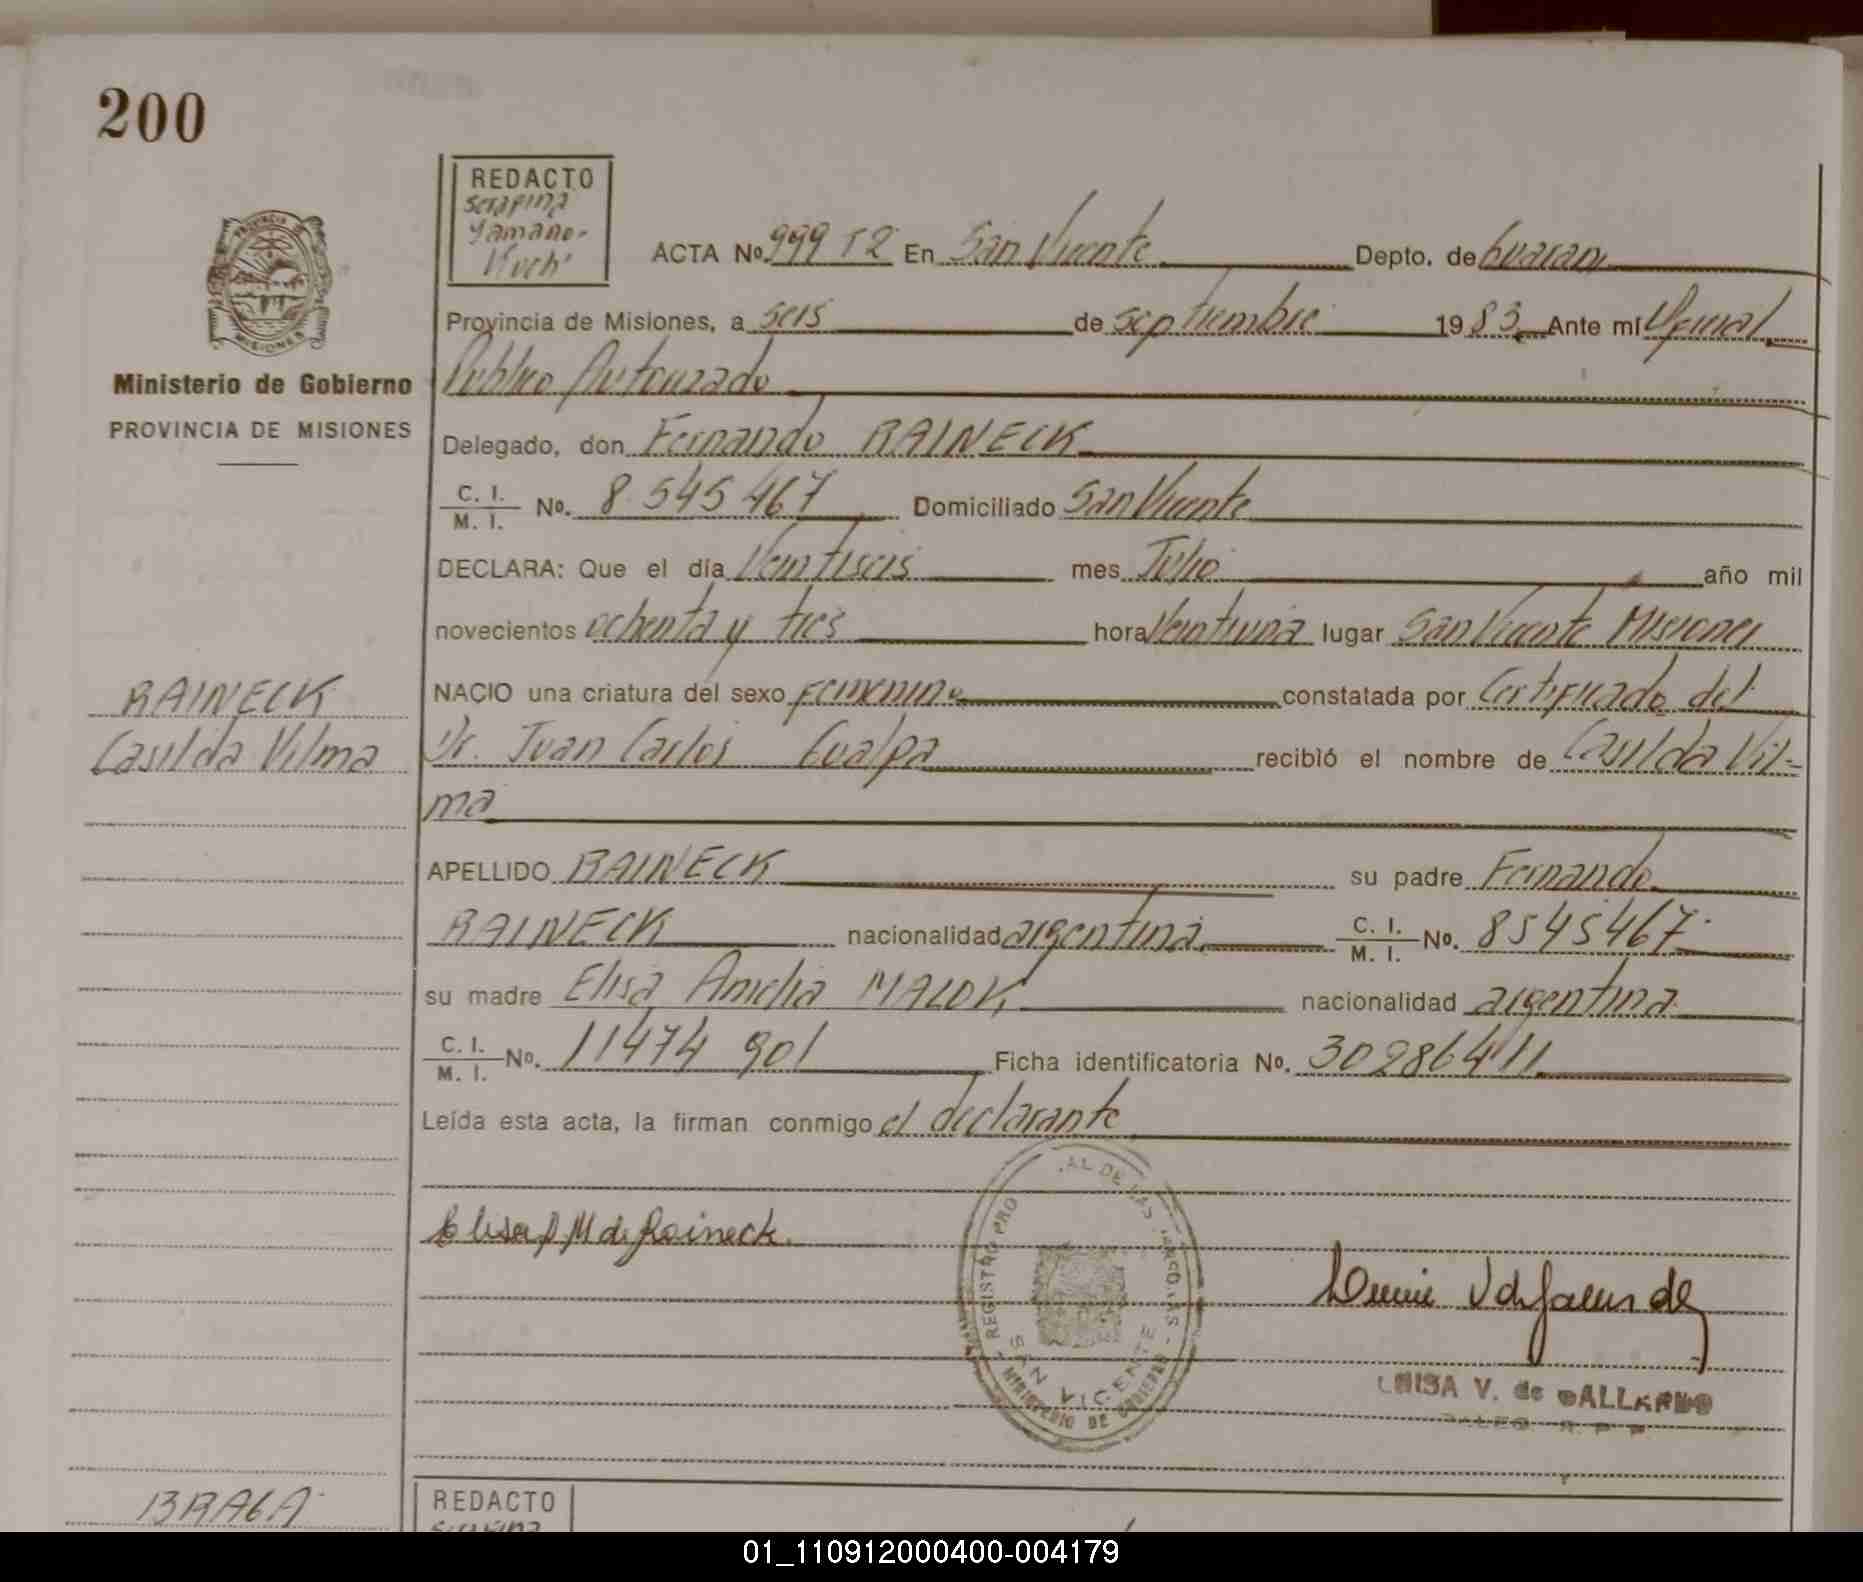 200
REDACTO
Serafina
Yamano-
Kuchi
ACTA No. 999 T2 En San Vicente Depto. de Guarani
Provincia de Misiones, a seis de septiembre 1983 Ante mí Oficial
Publico Autorizado
Ministerio de Gobierno
PROVINCIA DE MISIONES
Delegado, don Fernando RAINECK
C. I.
M. I. No. 8.545 467 Domiciliado San Vicente
DECLARA: Que el día Veintiseis mes Julio año mil
novecientos ochenta y tres hora Veintiuna lugar San Vicente Misiones
NACIO una criatura del sexo femenino constatada por Certificado del
RAINECK
Casilda Vilma
Dr. Juan Carlos Gualpa recibió el nombre de Casilda Vil-
ma
APELLIDO RAINECK su padre Fernando
RAINECK nacionalidad argentina C. I.
M. I. No. 8545467
su madre Elisa Amelia MALOK nacionalidad argentina
C. I.
M. I. No. 11474 901 Ficha identificatoria No. 30286411
Leída esta acta, la firman conmigo el declarante
Elisa A M de Raineck
REGISTRO PRO AL DE LAS
SAN VICENTE
MINISTERIO DE GOBIERNO
LUISA V. de GALLARDO
BRAGA
REDACTO
Serafina
01_110912000400-004179